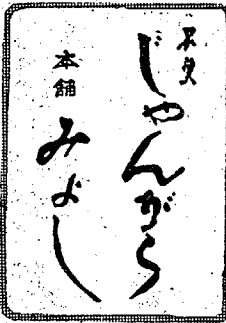 じゃんがら
本舗
みよし